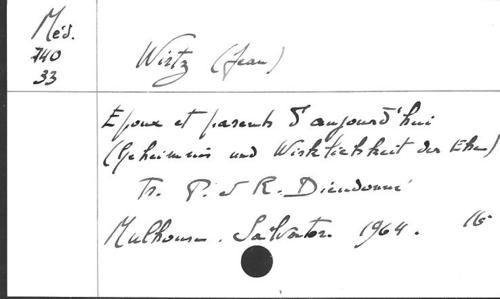 Méd.
740
33
Wirtz (Jean)
Epoux et parents d'aujourd'hui
(Geheimnis und Wirklichkeit der Ehe)
Tr. P. et R. Dieudonné
Mulhouse. Salvator. 1964.